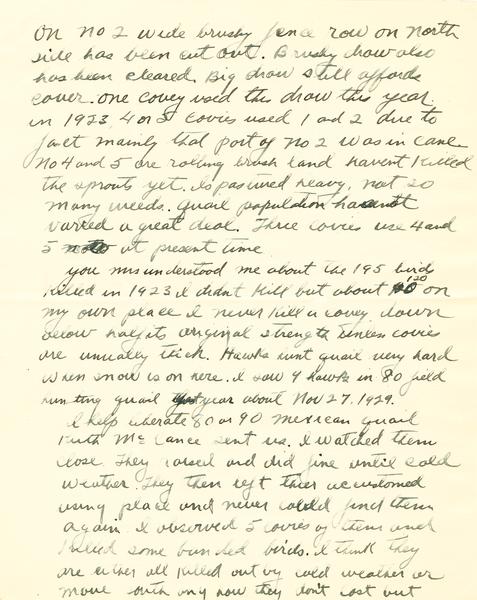 On No 2 wide brushy fence row on North
side has been cut out. Brushy draw also
has been cleared. Big draw still affords
cover. one covey used this draw this year.
in 1923 4 or 5 covies used 1 ad 2 due to
fact mainly that part of No 2 was in cane.
No 4 and 5 are rolling brush land havent killed
the sprouts yet. Is pastured heavy, not so
many weeds. Quail population hasent
varied a great deal. Three covies use 4 and
5 at present time
you missunderstood me about the 195 birds
killed in 1923 I didnt kill but about 120 on
my own place I never kill a covey down
below half its original strength unless covies
are unusally thick. Hawks hunt quail very hard
when snow is on here. I saw 9 hawks in 80 field
hunting quail year about Nov 27, 1929.
I help liberate 80 or 90 Mexican quail
Ruth McCance sent us. I watched them
close. They raised and did fine until cold
weather. They then left thier accustomed
using place and never could find them
again. I observed 5 covies of them and
killed some banded birds. I think they
are either all killed out by cold weather or
move south any how they dont last out